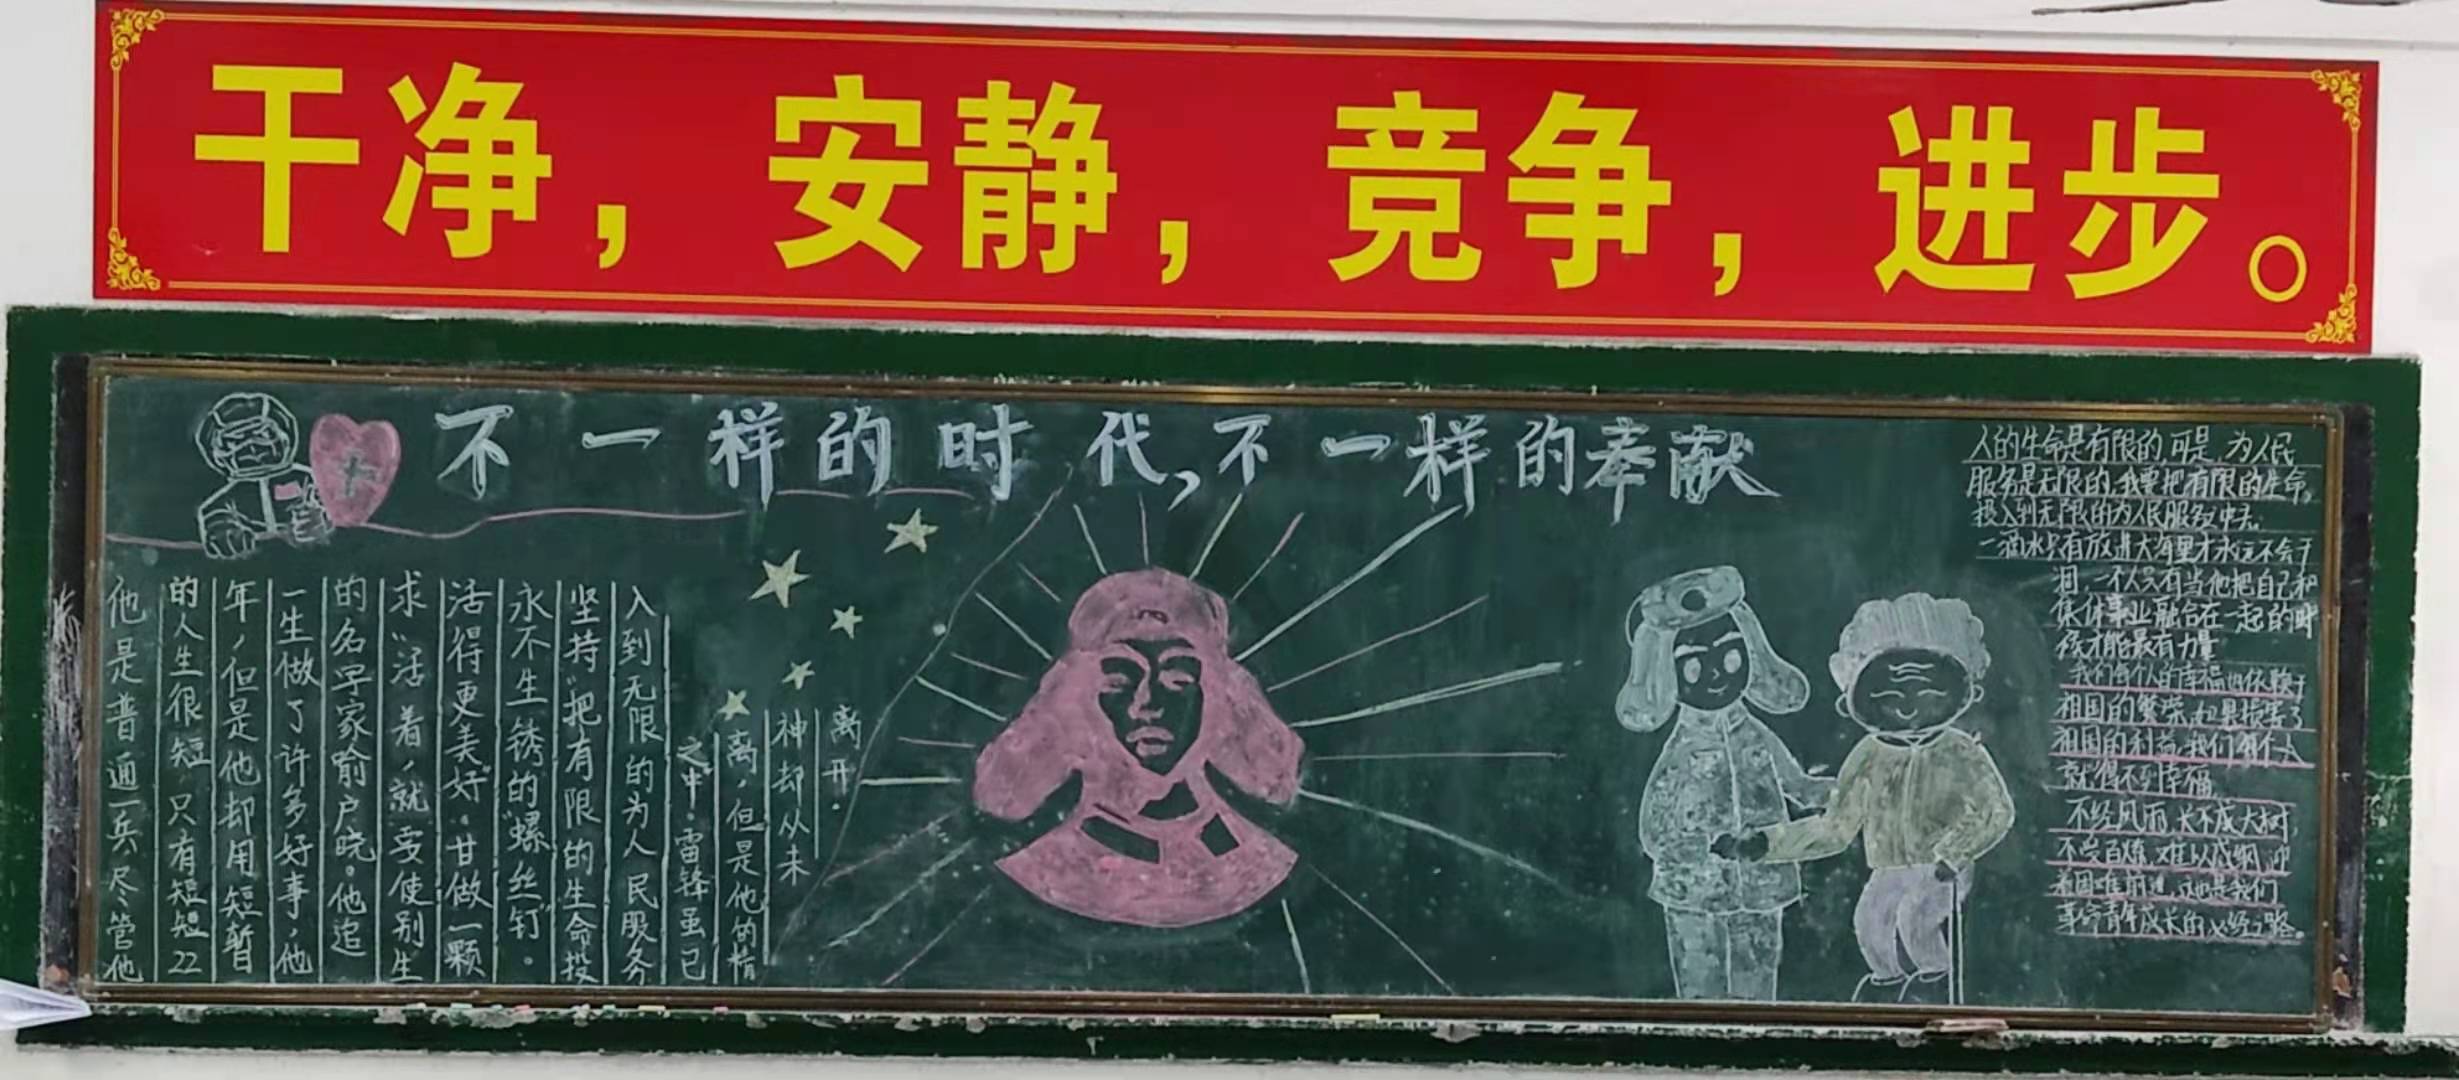 干净，安静，竞争，进步。
不一样的时代，不一样的奉献
他是普通一兵，尽管他
的人生很短，只有短短22
年，但是他却用短暂
一生做了许多好事，他
的名字家喻户晓。他追
求“活着，就要使别生
活得更美好”。甘做一颗
永不生锈的“螺丝钉”。
坚持“把有限的生命投
入到无限的为人民服务
之中”。雷锋虽已
离，但是他的精
神却从未
离开。
人的生命是有限的，可是，为人民
服务是无限的，我要把有限的生命，
投入到无限的为人民服务之中去。
一滴水只有放进大海里才永远不会干
涸，一个人只有当他把自己和
集体事业融合在一起的时
候才能最有力量
我们每个人的幸福也依赖于
祖国的繁荣，如果损害了
祖国的利益，我们每个人
就得不到幸福
不经风雨，长不成大树，
不受百炼，难以成钢，迎
着困难前进，这也是我们
革命青年成长的必经之路。